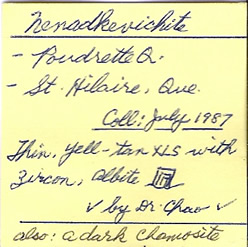 Nenadkevichite
- Poudrette Q.
- St. Hilaire, Que.
Coll: July 1987
Thin, yell-tan XLS with
zircon, albite
✓ by Dr. Chao ✓
also: a dark chamosite